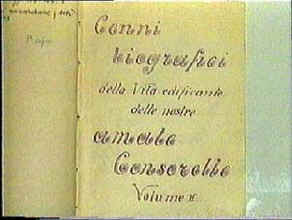 Cenni
biografici
della Vita edificante
delle nostre
amate
Consorelle
Volume II.